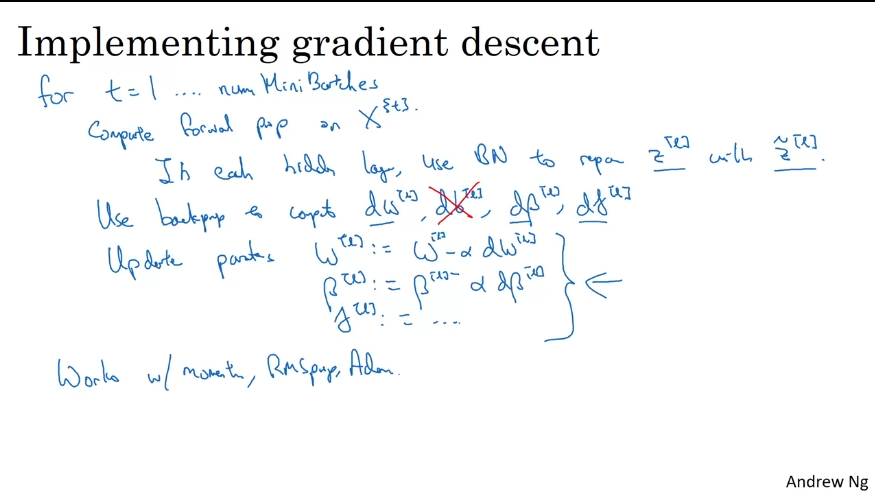 Implementing gradient descent
for t = 1 .... num Mini Batches
Compute forward prop on X^{t}.
In each hidden layer, use BN to replace z^[l] with z̃^[l].
Use backprop to compute dw^[l], db^[l], dβ^[l], dγ^[l]
Update parameters w^[l] := w^[l] - α dw^[l]
β^[l] := β^[l] - α dβ^[l]
γ^[l] := ....
Works w/ momentum, RMSprop, Adam.
Andrew Ng